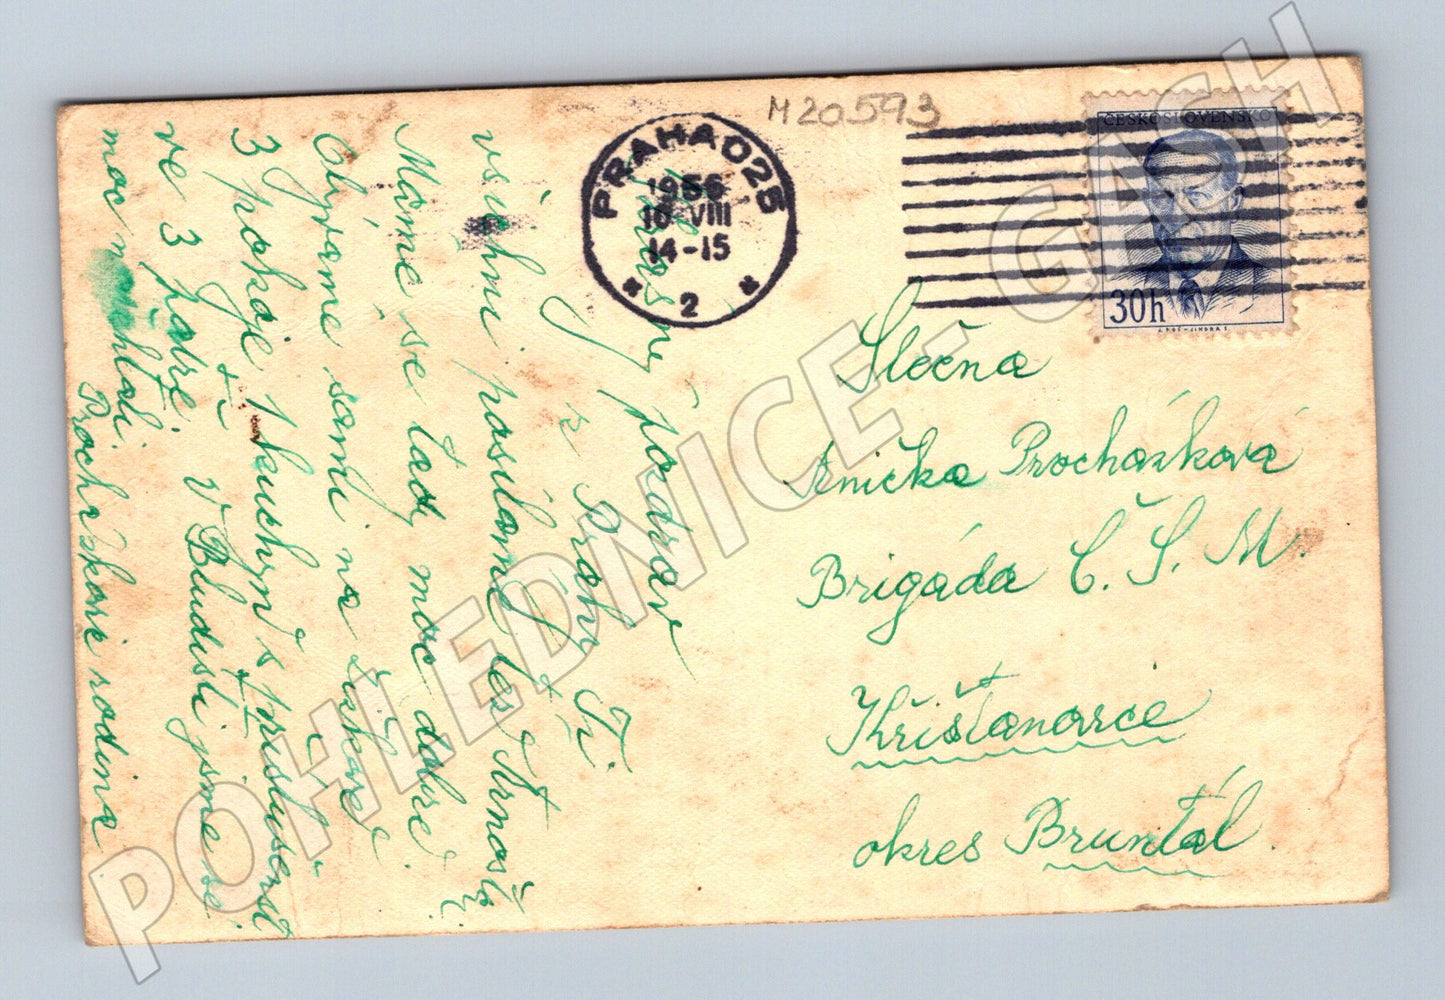 M20593
PRAHA 025
1956
10-VIII
14-15
* 2 *
ČESKOSLOVENSKO
30h
Slečna
Anička Procházková
Brigáda Č. S. M.
Křišťanovice
okres Bruntál.
pozdrav
z Prahy Ti
všichni posílame též Arnošt
Máme se tady moc dobře.
Obýváme sami na
3 pokoje 1 kuchyň s
ve 3 V Bludišti jsme se
moc nasmáli.
Procházkovi rodina
POHLEDNICE - GASH